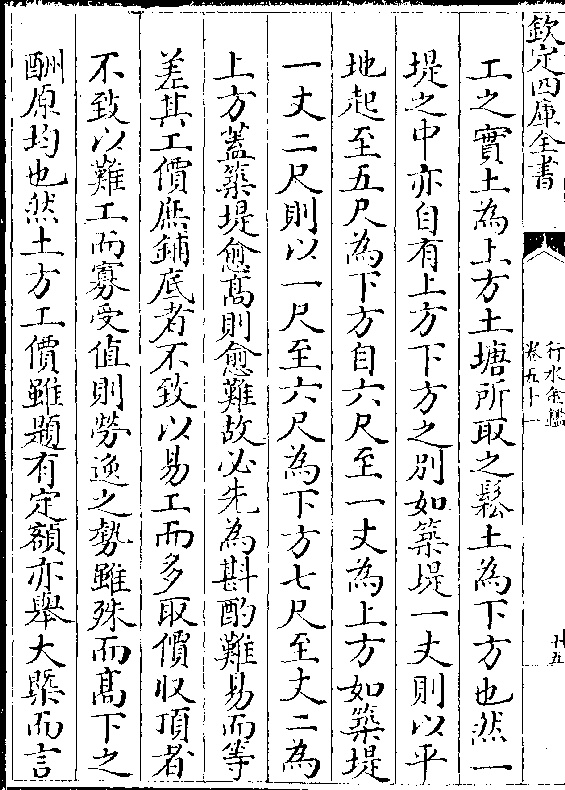 欽定四庫全書
行水金鑑
卷五十一
廿五
工之實土為上方土塘所取之鬆土為下方也然一
堤之中亦自有上方下方之別如築堤一丈則以平
地起至五尺為下方自六尺至一丈為上方如築堤
一丈二尺則以一尺至六尺為下方七尺至丈二為
上方蓋築堤愈髙則愈難故必先為斟酌難易而等
差其工價庶鋪底者不致以易工而多取價收頂者
不致以難工而寡受值則勞逸之勢雖殊而髙下之
酬原均也然土方工價雖題有定額亦舉大槩而言